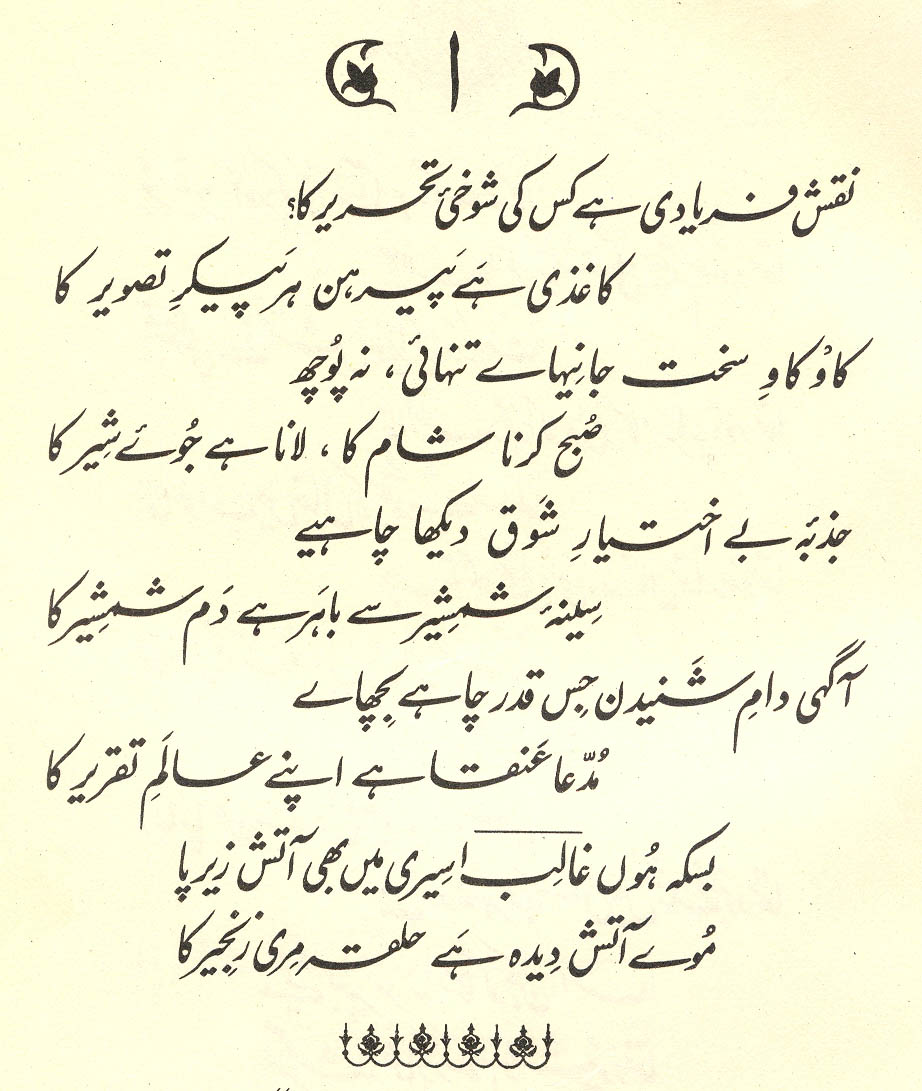 ۱
نقش فریادی ہے کس کی شوخیٔ تحریر کا؟
کاغذی ہَے پَیرہن ہر پَیکرِ تصویر کا
کاوْ کاوِ سخت جانیہاے تنہائی، نہ پُوچھ
صُبح کرنا شام کا، لانا ہے جُوئے شِیر کا
جذبۂ بے اختیارِ شَوق دیکھا چاہیے
سِینۂ شمشِیر سے باہَر ہے دَم شمشِیر کا
آگہی دامِ شَنیدن جِس قدر چاہے بِچھاے
مُدّعا عَنقا ہے اپنے عالَمِ تقریر کا
بسکہ ہُوں غالِب اسِیری میں بھی آتش زیرِ پا
مُوے آتش دِیدہ ہَے حلقہ مِری زنجِیر کا